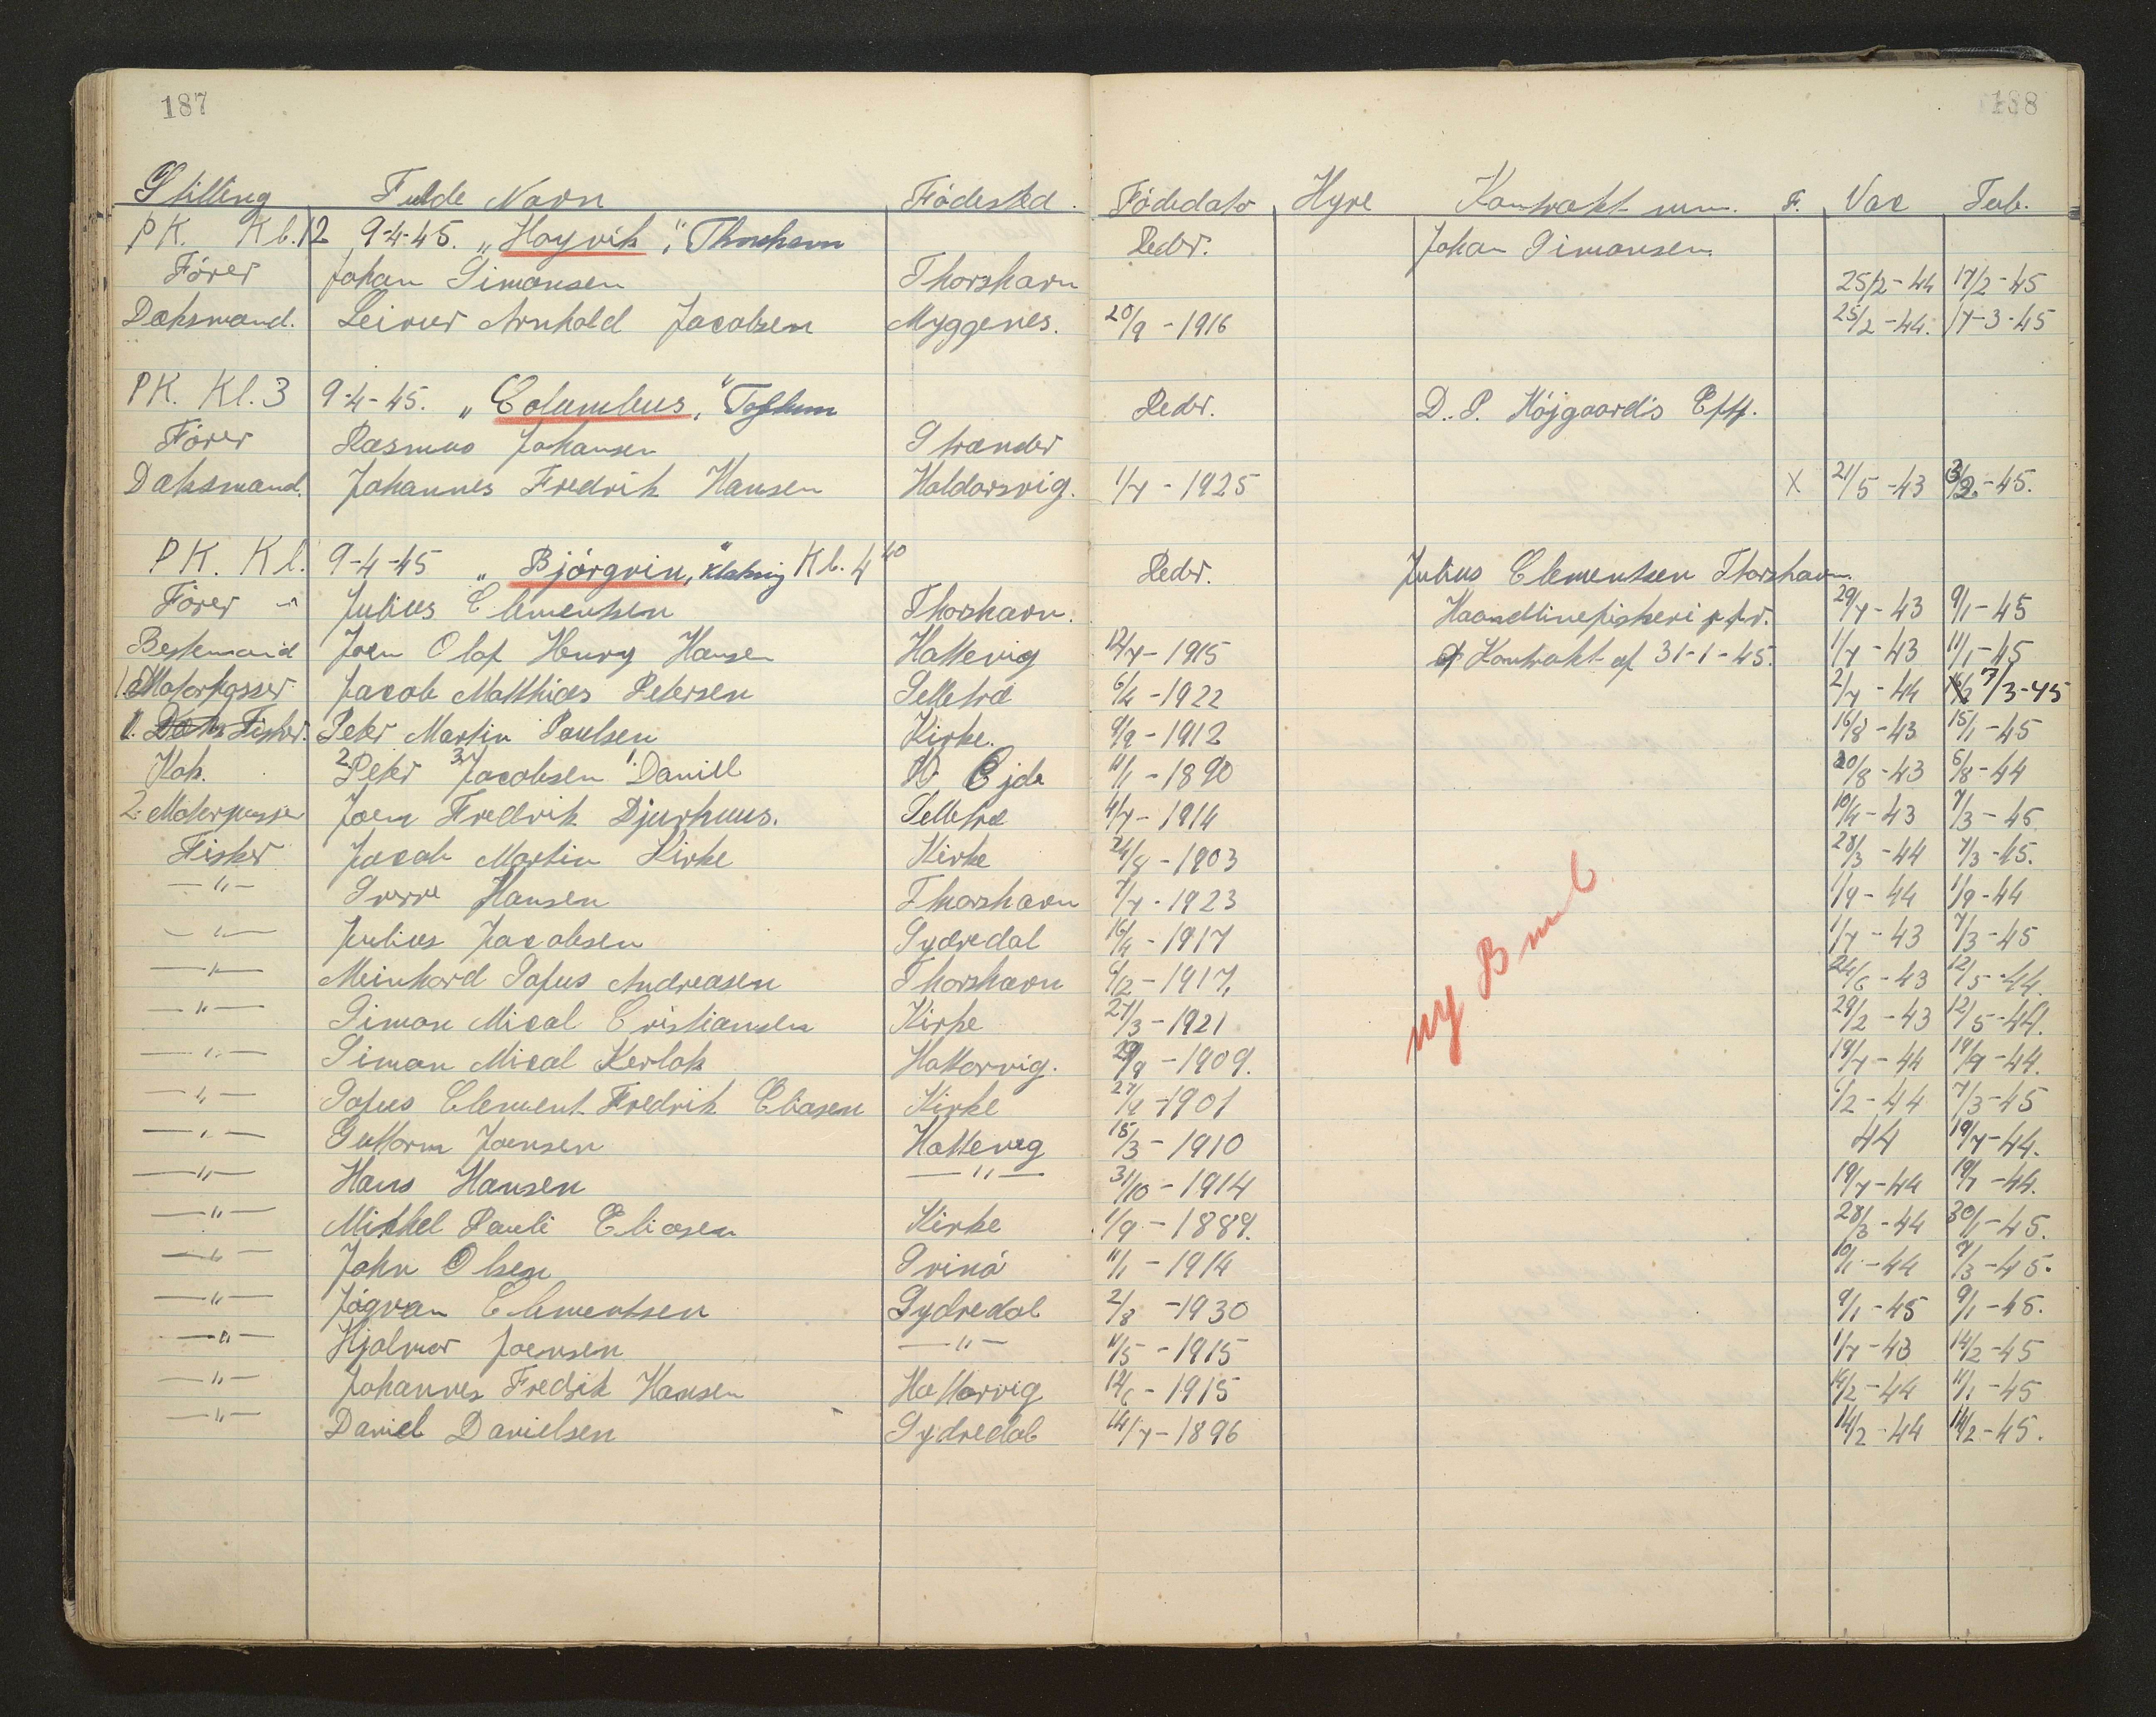 187
188
Stilling Fulde Navn Födested. Födedato Hyre Kontrakt mm. F. Vac Tub.
PK. Kl. 12 9-4-45. „Hoyvik," Thorshavn Reder. Johan Simonsen.
Förer Johan Simonsen Thorshavn 25/2-44 17/2-45
Daksmand. Leivur Arnhold Jacobsen Myggenes. 20/9-1916 25/2-44. 17-3-45
PK. Kl. 3 9-4-45. „Columbus," Reder. D. P. Højgaard's Eftf.
Förer Rasmus Johansen Strander
Daksmand. Johannes Fredrik Hansen Haldarsvig. 1/7-1925 X 21/5-43 -45.
PK. Kl. 9-4-45 „Bjørgvin," Klaksvig Kl. 4 40 Reder. Julius Clementsen Thorshavn.
Förer Julius Clementsen Thorshavn. Haandlinefiskeri 29/7-43 9/1-45
Bestemand Joen Olaf Henry Hansen Hattevig 12/7-1915 Kontrakt af 31-1-45. 1/7-43 11/1-45
1. Motorpasser Jacob Matthias Petersen Selletræ 6/4-1922 2/7-44 7/3-45
Fisker. Peter Martin Poulsen Kirke. 9/9-1912 16/8-43 15/1-45
Kok. 2. Peter 3. Jacobsen 1. Daniel Ejde 11/1-1890 20/8-43 6/8-44
2. Motorpasser Joen Fredrik Djurhuus. Selletræ 4/7-1914 10/4-43 7/3-45
Fisker Jacob Martin Kirke Kirke 24/8-1903 28/3-44 7/3-45.
—"— Sverre Hansen Thorshavn 7/7-1923 1/9-44 1/9-44
—"— Julius Jacobsen Sydredal 16/4-1917 1/7-43 7/3-45
—"— Meinhard Jafus Andreasen Thorshavn 6/2-1917, 24/6-43 12/5-44.
—"— Simon Mical Cristiansen Kirke 27/3-1921 29/2-43 12/5-44.
—"— Simon Mical Kerlak Hattarvig. 29/9-1909. 19/7-44 19/9-44.
—"— Jafus Clement Fredrik Eliasen Kirke 27/9-1901 6/2-44 7/3-45
—"— Guttorm Joensen Hattevig 15/3-1910 44 19/7-44.
—"— Hans Hansen —"— 31/10-1914 19/7-44 19/7-44.
—"— Mikkel Pauli Eliasen Kirke 1/9-1889. 28/3-44 30/1-45.
—"— John Olsen Svinó 11/1-1914 10/1-44 7/3-45.
—"— Jógvan Clementsen Sydredal 2/8-1930 9/1-45 9/1-45.
—"— Hjalmar Joensen —"— 11/5-1915 1/7-43 14/2-45
—"— Johannes Fredrik Hansen Hattarvig 12/6-1915 14/2-44 11/1-45
—"— Daniel Danielsen Sydredal 14/7-1896 14/2-44 14/2-45.
ny B